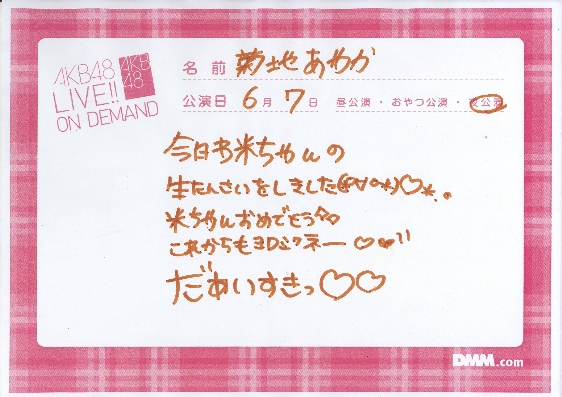 AKB48
LIVE!!
ON DEMAND
AKB
48
名前 菊地あやか
公演日 6月 7日 昼公演・おやつ公演・夜公演
今日わ米ちゃんの
生たんさいをしました(*°∀°*)♡*.。
米ちゃんおめでとう
これからもヨロシクネー♡♥!!
だぁいすきっ♡♡
DMM.com